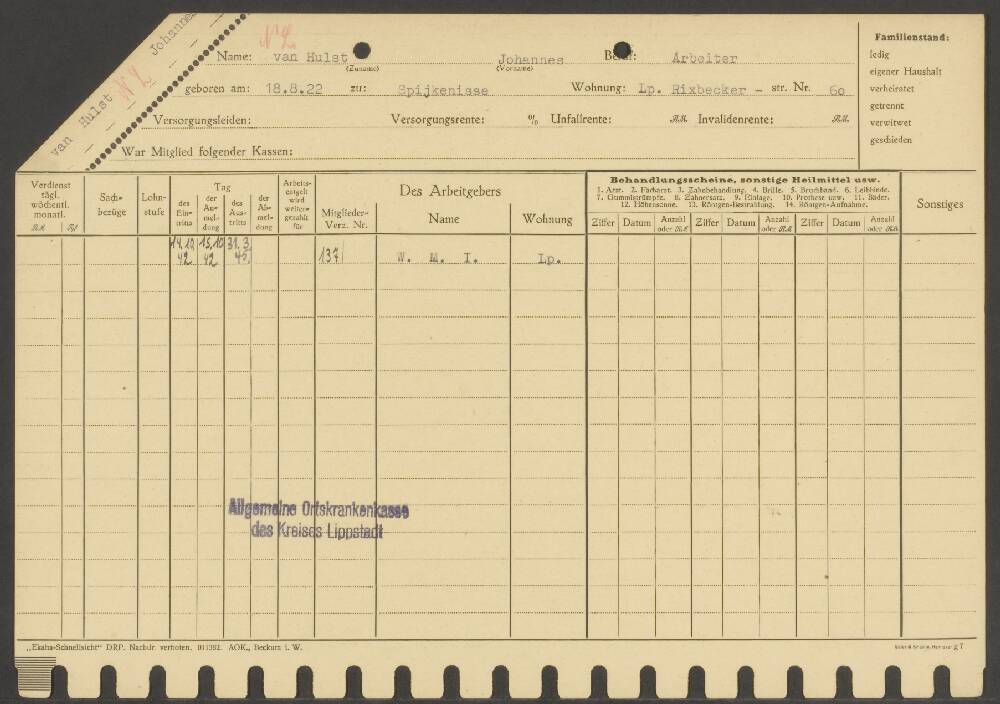 van Hulst Johannes
N L
N L
Name: van Hulst Johannes Beruf: Arbeiter
(Zuname) (Vorname)
geboren am: 18.8.22 zu: Spijkenisse Wohnung: Lp. Rixbecker - str. Nr. 6o
Versorgungsleiden: Versorgungsrente: % Unfallrente: RM. Invalidenrente: RM.
War Mitglied folgender Kassen:
Familienstand:
ledig
eigener Haushalt
verheiratet
getrennt
verwitwet
geschieden
Verdienst
tägl.
wöchentl.
monatl.
RM. Rpf
Sach-
bezüge
Lohn-
stufe
Tag
des
Ein-
tritts
der
An-
mel-
dung
des
Aus-
tritts
der
Ab-
mel-
dung
Arbeits-
entgelt
wird
weiter-
gezahlt
für
Mitglieder-
Verz. Nr.
Des Arbeitgebers
Name Wohnung
Behandlungsscheine, sonstige Heilmittel usw.
1. Arzt. 2. Facharzt. 3. Zahnbehandlung. 4. Brille. 5. Bruchband. 6. Leibbinde.
7. Gummistrümpfe. 8. Zahnersatz. 9. Einlage. 10. Prothese usw. 11. Bäder.
12. Höhensonne. 13. Röntgen-Bestrahlung. 14. Röntgen-Aufnahme.
Ziffer Datum Anzahl oder RM. Ziffer Datum Anzahl oder RM. Ziffer Datum Anzahl oder RM.
Sonstiges
14.10 15.10 31.3.
42 42 45. 137 W. M. I. Lp.
Allgemeine Ortskrankenkasse
des Kreises Lippstadt
„Ekaha-Schnellsicht“ DRP. Nachdr. verboten. 011392. AOK., Beckum i. W.